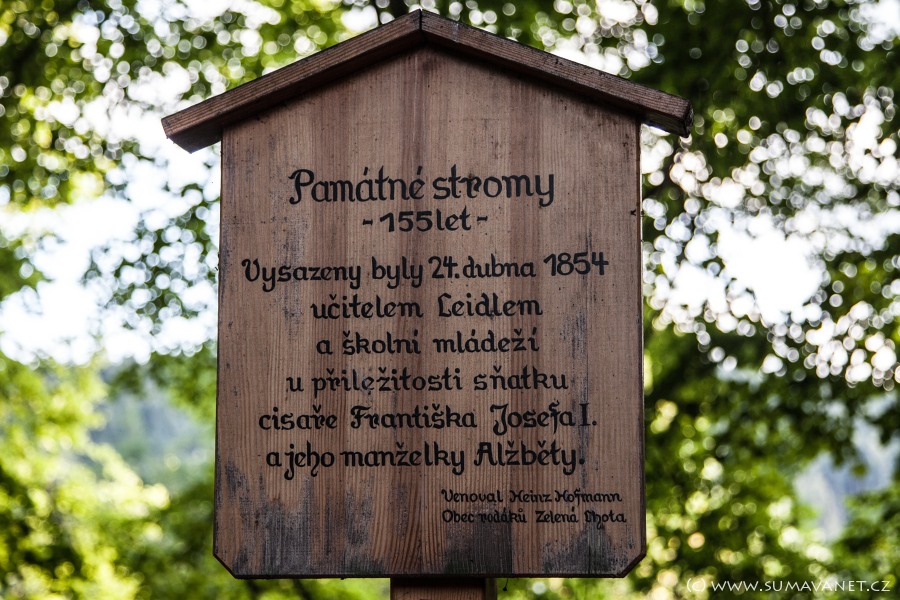 Památné stromy
- 155 let -
Vysazeny byly 24. dubna 1854
učitelem Leidlem
a školní mládeží
u přiležitosti sňatku
cisaře Františka Josefa I.
a jeho manželky Alžběty.
Venoval Heinz Hofmann
Obec rodáků Zelená Lhota
© WWW.SUMAVANET.CZ